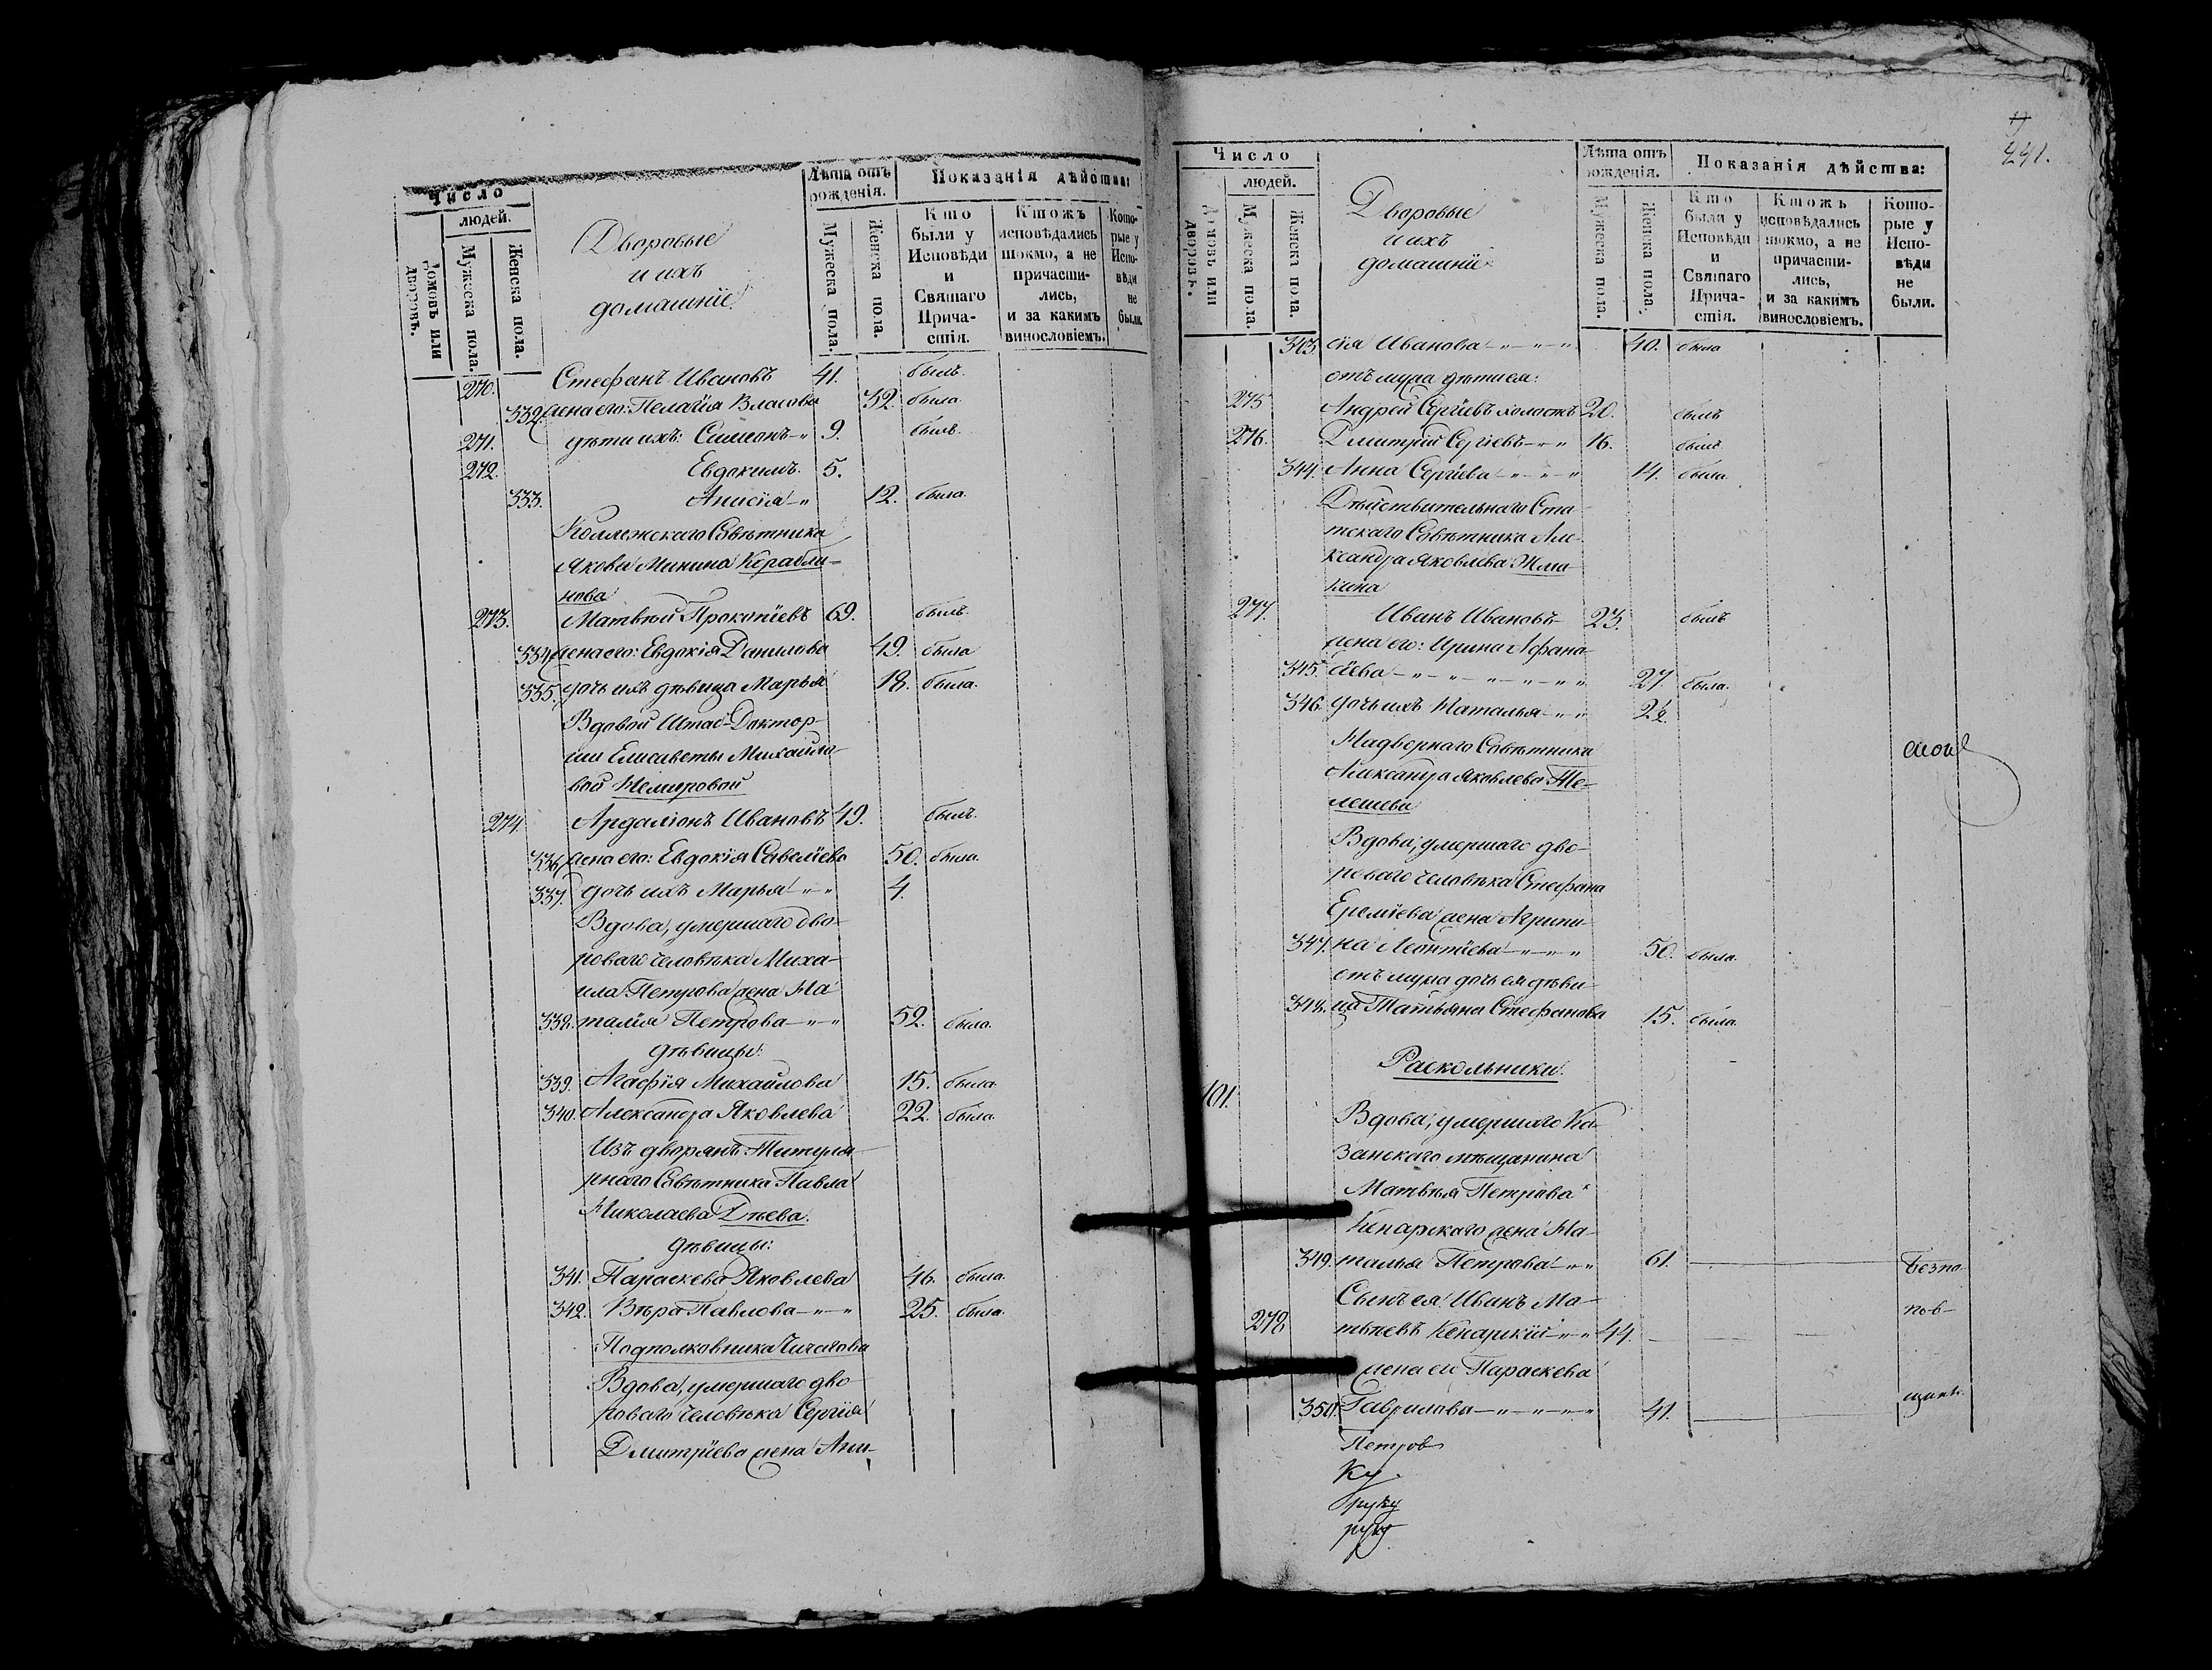 Число
людей.
Домовъ или дворовъ.
Мужеска пола.
Женска пола.
Дворовые
и ихъ
домашніе.
Лѣта отъ рожденія.
Мужеска пола.
Женска пола.
Показанія дѣйства:
Кто были у Исповѣди и Святаго Прича-стія.
Ктожъ исповѣдались токмо, а не причасти-лись, и за какимъ винословіемъ.
Кото-рые у Испо-вѣди не были.
270. Стефанъ Ивановъ 41. былъ.
332. жена его: Пелагія Власова 32. была.
271. дѣти ихъ: Симеонъ 9. былъ.
272. Евдокимъ. 5.
333. Анисія 12. была.
Коллежскаго Совѣтника
Якова Минина Корабли-
нова
273. Матвѣй Прокопіевъ 69. былъ.
334. жена его: Евдокія Данилова 49. была
335. дочь ихъ дѣвица Марья 18. была.
Вдовой Штаб-Доктор-
ши Елисаветы Михайло-
вой Немировой
274. Ардаліонъ Ивановъ 49. былъ.
336. жена его: Евдокія Савеліева 50. была.
337. дочь ихъ Марья 4.
Вдова, умершаго дво-
роваго человѣка Миха-
ила Петрова жена На
338. талія Петрова 52. была.
дѣвицы:
339. Агафія Михайлова 15. была.
340. Александра Яковлева 22. была.
Изъ дворянъ Титуля-
рнаго Совѣтника Павла
Николаева Дѣева.
дѣвицы:
341. Параскева Яковлева 46. была.
342. Вѣра Павлова 25. была.
Подполковника Чичагова
Вдова, умершаго дво-
роваго человѣка Сергія
Дмитріева жена Ани-
441.
Число
людей.
Домовъ или дворовъ.
Мужеска пола.
Женска пола.
Дворовые
и ихъ
домашніе
Лѣта отъ рожденія.
Мужеска пола.
Женска пола.
Показанія дѣйства:
Кто были у Исповѣди и Святаго Прича-стія.
Ктожъ исповѣдались токмо, а не причасти-лись, и за какимъ винословіемъ.
Кото-рые у Испо-вѣди не были.
343. сія Иванова 40. была
отъ мужа дѣти ея:
275 Андрей Сергіевъ холостъ 20. былъ
276. Дмитрій Сергіевъ 16. былъ
344. Анна Сергіева 14. была.
Дѣйствительнаго Ста-
тскаго Совѣтника Але-
ксандра Яковлева Жма-
кина
277. Иванъ Ивановъ 23. былъ
жена его: Ирина Афана-
345. сіева 27. была.
346. дочь ихъ Наталья 2½.
Надворнаго Совѣтника
Александра Яковлева Те-
лешева
Вдова, умершаго дво-
роваго человѣка Стефана
Еремѣева жена Агрипи-
347. на Леонтіева 50. была.
отъ мужа дочь ея дѣви-
348. ца Татьяна Стефанова 15. была.
Раскольники.
101.
Вдова, умершаго Ка-
занскаго мѣщанина
Матвѣя Петрова
жена На-
349. талья Петрова 61. Безпо-
Сынъ ея Иванъ Ма- пов-
278. твѣевъ 44.
жена его Параскева
350. Гаврилова 41. щинѣ.
Петров
Ку
руку
руку